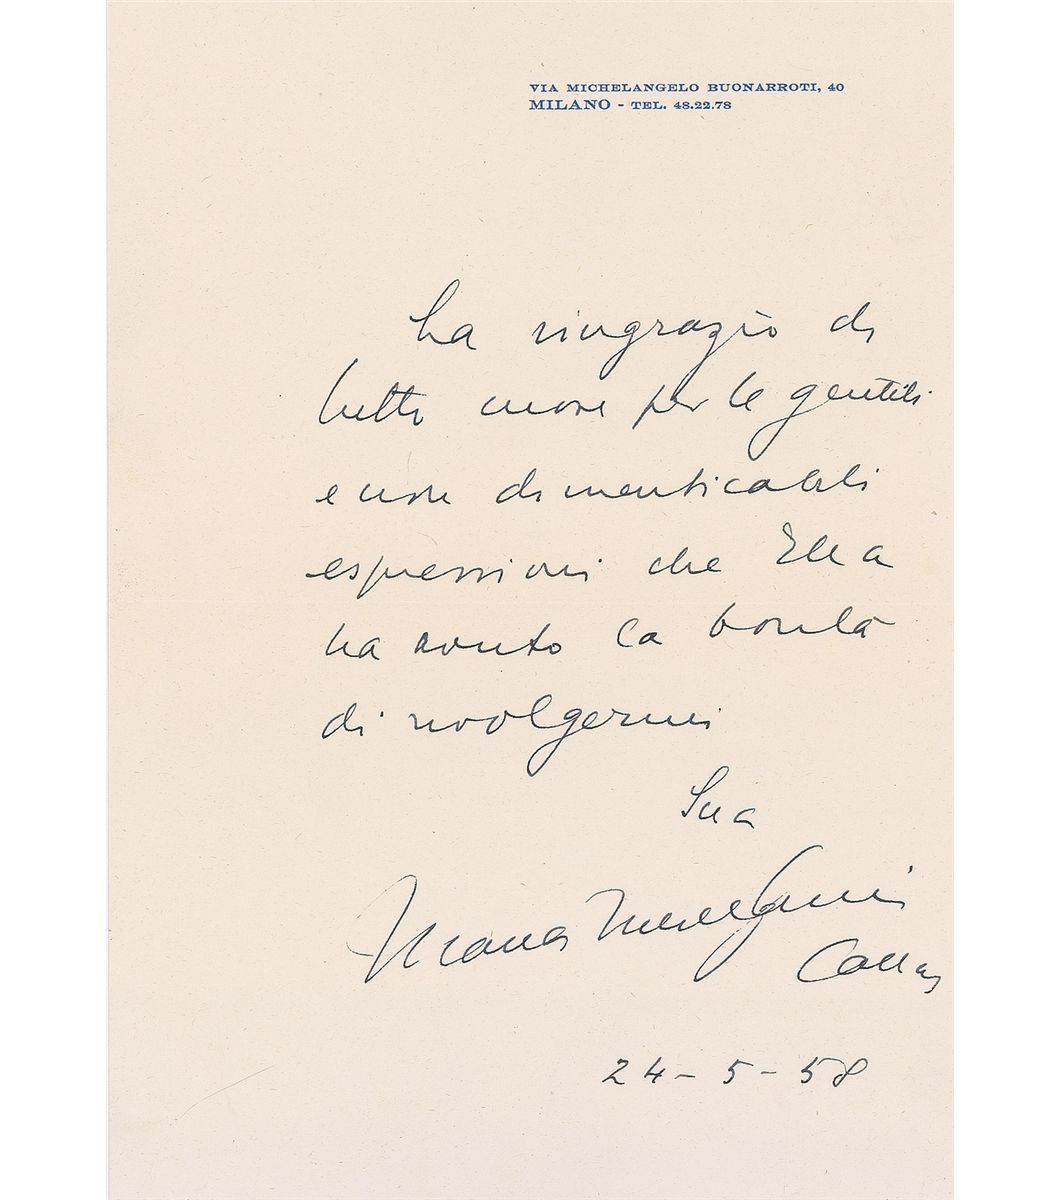 VIA MICHELANGELO BUONARROTI, 40
MILANO - TEL. 48.22.78
La ringrazio di
tutto cuore per le gentili
e non dimenticabili
espressioni che Ella
ha avuto la bontà
di rivolgermi
Sua
Maria Meneghini
Callas
24 - 5 - 58